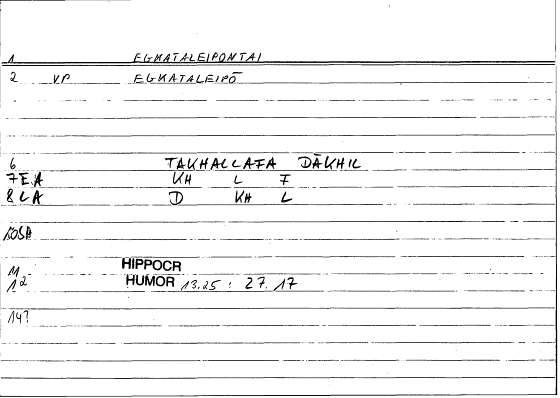 1 EGKATALEIPONTAI
2 VP EGKATALEIPŌ
6 TAKHALLAFA DĀKHIL
7 E.A KH L F
8 L A D KH L
HIPPOCR
11
12 HUMOR 13.25 : 27.17
14?